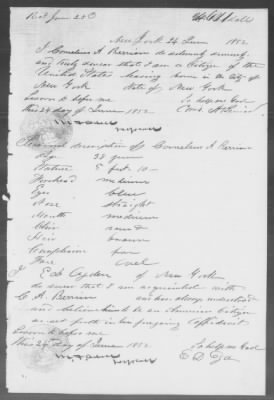 New York 24 June 1852
I Cornelius A Berrian do solemnly
and truly swear that I am a Citizen of the
United States having born in the City of
New York State of New York
Sworn to before me So help me God
this 24 day of June 1852
Personal description of Cornelius A Berrian
Age 38 years
Stature 5 feet 10
Forehead medium
Eyes blue
Nose straight
Mouth medium
Chin round
Hair brown
Complexion fair
Face oval
I E D Ogden of New York
do swear that I am acquainted with
C A Berrian and have always understood
and believe him to be an American Citizen
as set forth in his foregoing affidavit
Sworn to before me
this 24 day of June 1852 So help me God